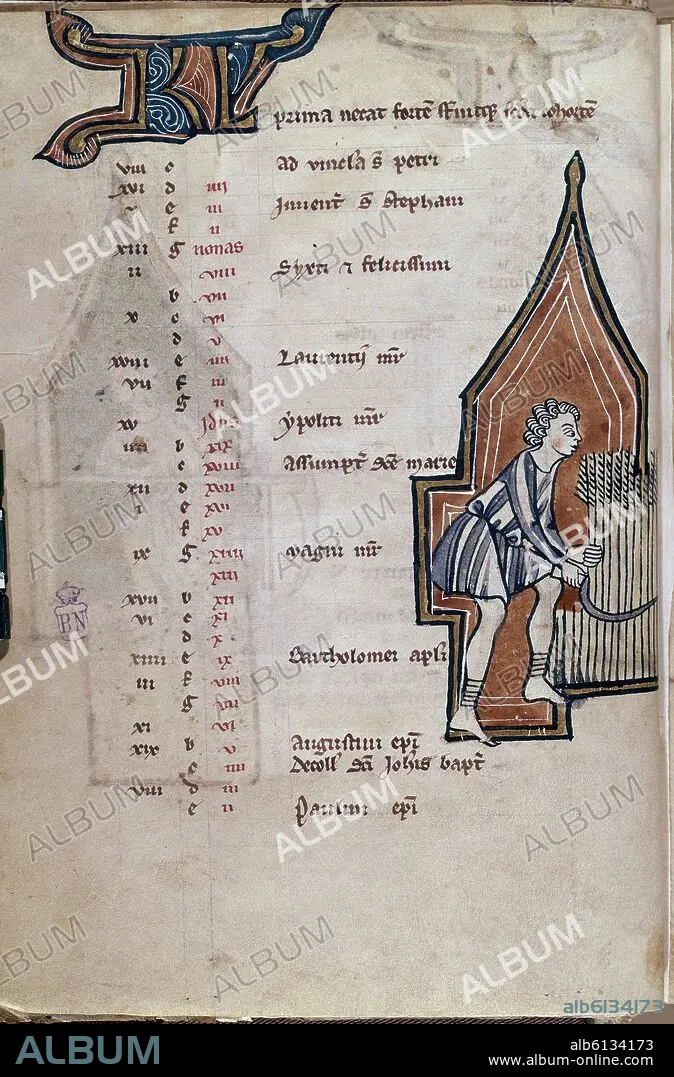 KL
prima necat
viii c ad vincla s petri
xvi d iiii
e iii Invent s Stephani
f ii
xiii g nonas
ii viii Syxti 7 felicissimi
b vii
x c vi
d v
xviii e iiii Laurentii mr
vii f iii
g ii
xv Idus ypoliti mr
iiii b xix
c xviii assumpt sce marie
xii d xvii
i e xvi
f xv
ix g xiiii magni mr
xiii
xvii b xii
vi c xi
d x
xiiii e ix Bartholomei apli
iii f viii
g vii
xi vi
xix b v augustini epi
c iiii decoll sci Johis bapt
viii d iii
e ii Paulini epi
BN
ALBUM
alb6134173
ALBUM
alb6134173
www.album-online.com